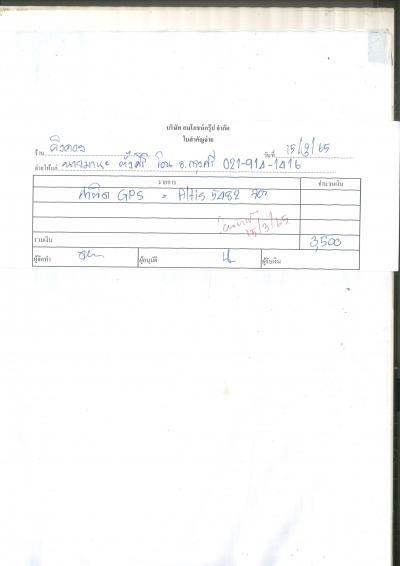 บริษัท สมโภชน์กรุ๊ป จำกัด
ใบสำคัญจ่าย
ร้าน คิวคอง วันที่ 15/3/65
จ่ายให้แก่ นายมานะ ตั้งศิริ โอน ธ.กรุงศรี 021-914-1416
รายการ จำนวนเงิน
ค่าติด GPS = Altis 5482
15/3/65
รวมเงิน 3,500
ผู้จัดทำ ผู้อนุมัติ ผู้รับเงิน